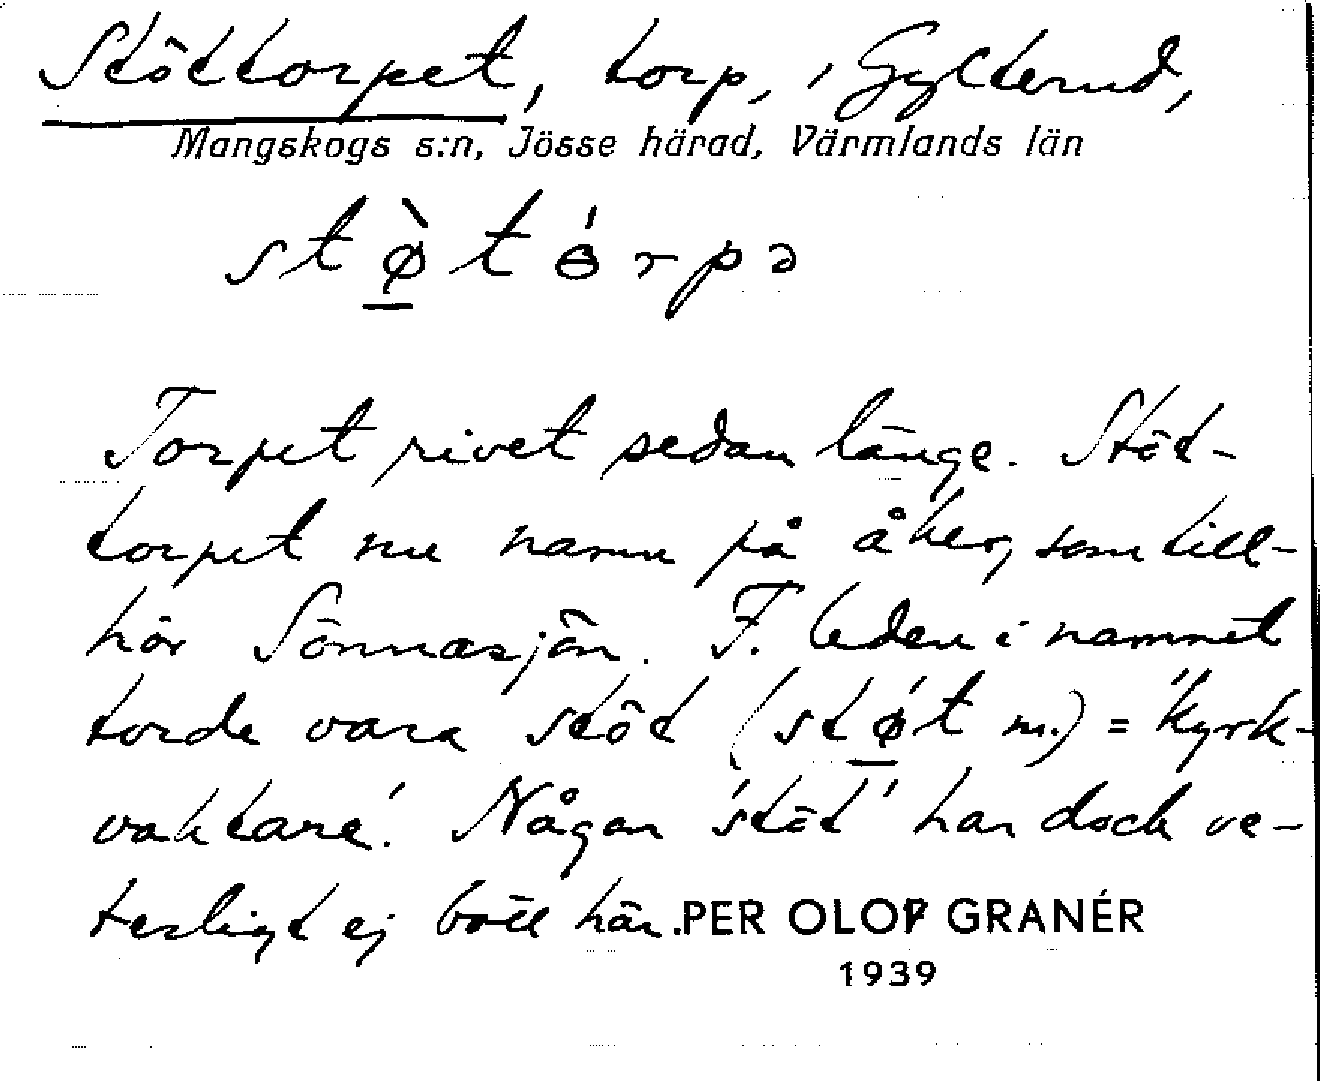 Stöttorpet, torp, i Gylterud,
Mangskogs s:n, Jösse härad, Värmlands län
stø̀tɵ́rpə
Torpet rivet sedan länge. Stöt-
torpet nu namn på åker, som till-
hör Sönnasjön. F. leden i namnet
torde vara stöt (stǿt m.) = 'kyrk-
vaktare'. Någon 'stöt' har dock ve-
terligt ej bott här. PER OLOF GRANÉR
1939